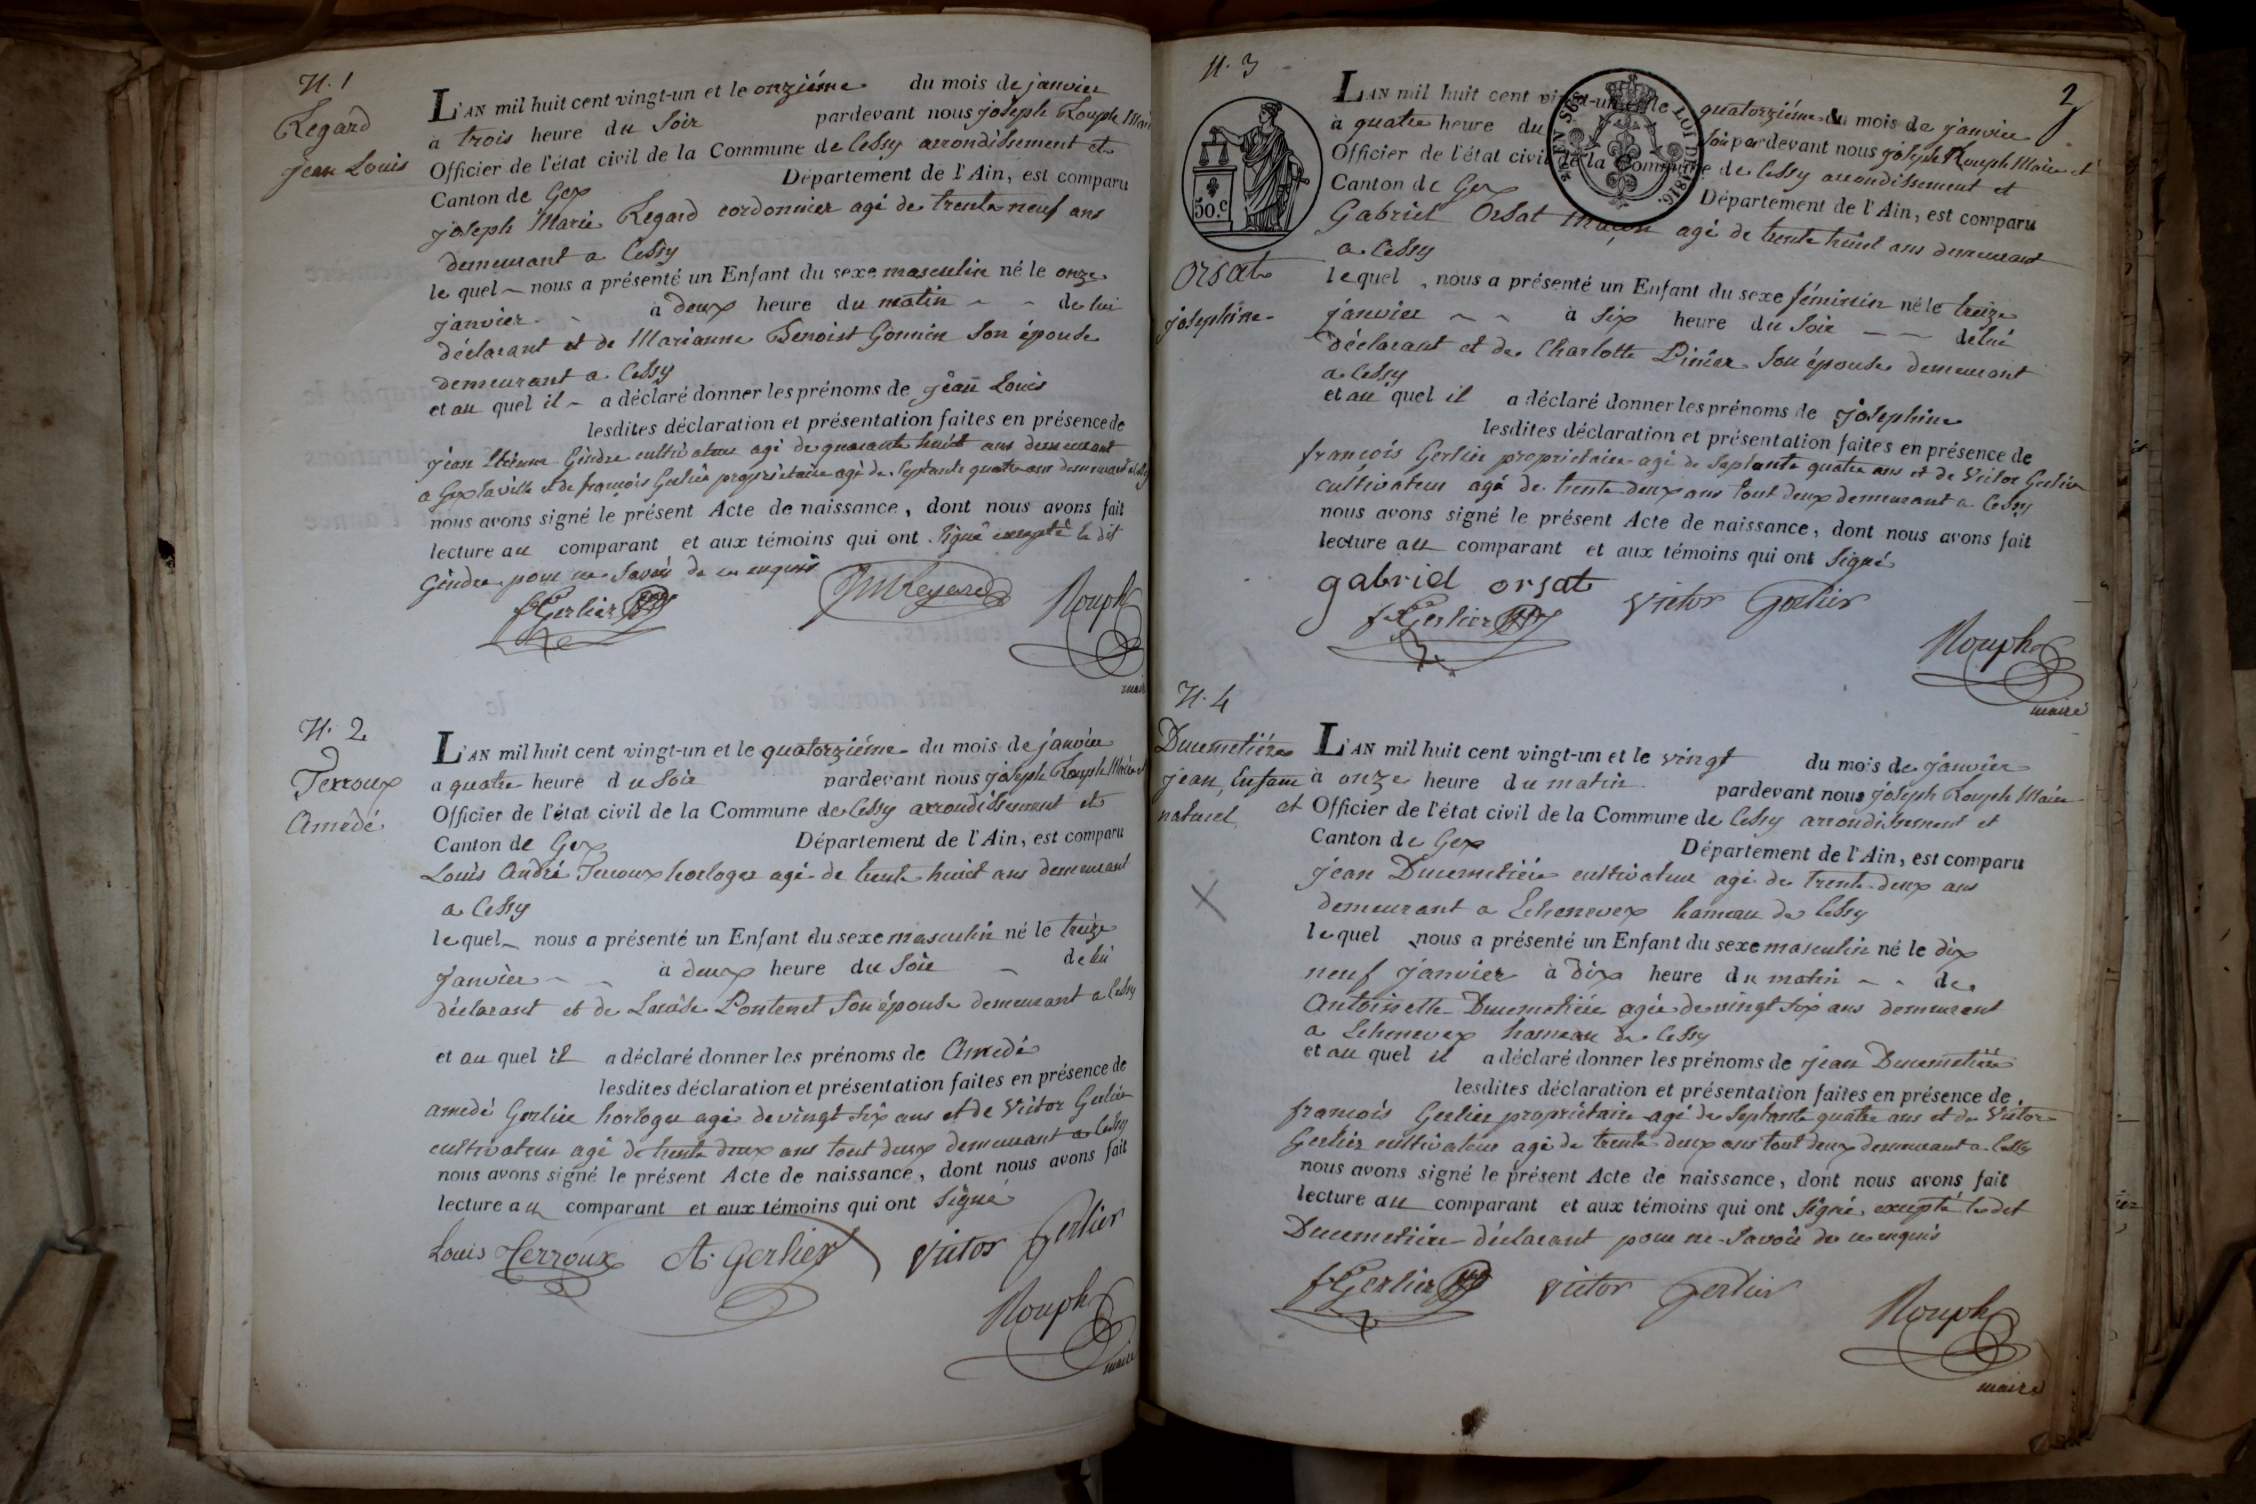 N. 1
Regard
jean Louis
L'AN mil huit cent vingt-un et le onziéme du mois de janvier
à trois heure du soir pardevant nous joseph Rouph Maire
Officier de l'état civil de la Commune de Cessy arrondissement et
Canton de Gex Département de l'Ain, est comparu
joseph Marie Regard cordonnier agé de trente neuf ans
demeurant a Cessy
le quel nous a présenté un Enfant du sexe masculin né le onze
janvier à deux heure du matin de lui
déclarant et de Marianne Benoist Gonnin son épouse
demeurant a Cessy
et au quel il a déclaré donner les prénoms de jean Louis
lesdites déclaration et présentation faites en présence de
jean Etienne Gindre cultivateur agé de quarante huit ans demeurant
a Gex la ville et de françois Gerlier proprietaire agé de septante quatre ans demeurant a Cessy
nous avons signé le présent Acte de naissance, dont nous avons fait
lecture au comparant et aux témoins qui ont signé excepté le dit
Gindre pour ne savoir de ce enquis
f Gerlier JMRegard Rouph
maire
N. 2
Terroux
Amédé
L'AN mil huit cent vingt-un et le quatorziéme du mois de janvier
a quatre heure du soir pardevant nous joseph Rouph Maire et
Officier de l'état civil de la Commune de Cessy arrondissement et
Canton de Gex Département de l'Ain, est comparu
Louis André Terroux horloger agé de trente huit ans demeurant
a Cessy
le quel nous a présenté un Enfant du sexe masculin né le treize
janvier à deux heure du soir de lui
déclarant et de Pontenet son épouse demeurant a Cessy
et au quel il a déclaré donner les prénoms de Amédé
lesdites déclaration et présentation faites en présence de
amedé Gerlier horloger agé de vingt six ans et de Victor Gerlier
cultivateur agé de trente deux ans tout deux demeurant a Cessy
nous avons signé le présent Acte de naissance, dont nous avons fait
lecture au comparant et aux témoins qui ont signé
Louis Terroux A. Gerlier Victor Gerlier
Rouph
maire
N. 3
2
50.c
EN SUS LOI DE 1816.
Orsat
josephine
L'AN mil huit cent vingt-un et le quatorziéme du mois de janvier
à quatre heure du soir pardevant nous joseph Rouph Maire et
Officier de l'état civil de la Commune de Cessy arrondissement et
Canton de Gex Département de l'Ain, est comparu
Gabriel Orsat Maçon agé de trente huit ans demeurant
a Cessy
le quel nous a présenté un Enfant du sexe féminin né le treize
janvier à six heure du soir de lui
déclarant et de Charlotte Pinier son épouse demeurant
a Cessy
et au quel il a déclaré donner les prénoms de josephine
lesdites déclaration et présentation faites en présence de
françois Gerlier proprietaire agé de septante quatre ans et de Victor Gerlier
cultivateur agé de trente deux ans tout deux demeurant a Cessy
nous avons signé le présent Acte de naissance, dont nous avons fait
lecture au comparant et aux témoins qui ont signé
gabriel orsat Victor Gerlier
f Gerlier
Rouph
maire
N. 4
Ducimetiére
jean, Enfant
naturel
L'AN mil huit cent vingt-un et le vingt du mois de janvier
à onze heure du matin pardevant nous joseph Rouph Maire
et Officier de l'état civil de la Commune de Cessy arrondissement et
Canton de Gex Département de l'Ain, est comparu
jean Ducimetiére cultivateur agé de trente-deux ans
demeurant a Echenevex hameau de Cessy
le quel nous a présenté un Enfant du sexe masculin né le dix
neuf janvier à dix heure du matin de
Antoinette Ducimetiére agée de vingt six ans demeurant
a Echenevex hameau de Cessy
et au quel il a déclaré donner les prénoms de jean Ducimetiére
lesdites déclaration et présentation faites en présence de
francois Gerlier proprietaire agé de septante quatre ans et de Victor
Gerlier cultivateur agé de trente deux ans tout deux demeurant a Cessy
nous avons signé le présent Acte de naissance, dont nous avons fait
lecture au comparant et aux témoins qui ont signé, excepté le dit
Ducimetiére déclarant pour ne savoir de ce enquis
f Gerlier Victor Gerlier
Rouph
maire